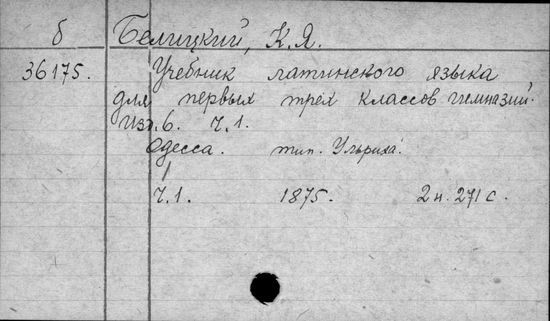 б Белицкий, К.Я.
36175. Учебник латинского языка
для первых трех классов гимназий.
Изд. 6. Ч.1.
Одесса. тип. Ульриха.
Ч.1. 1875. 2 н. 271 с.